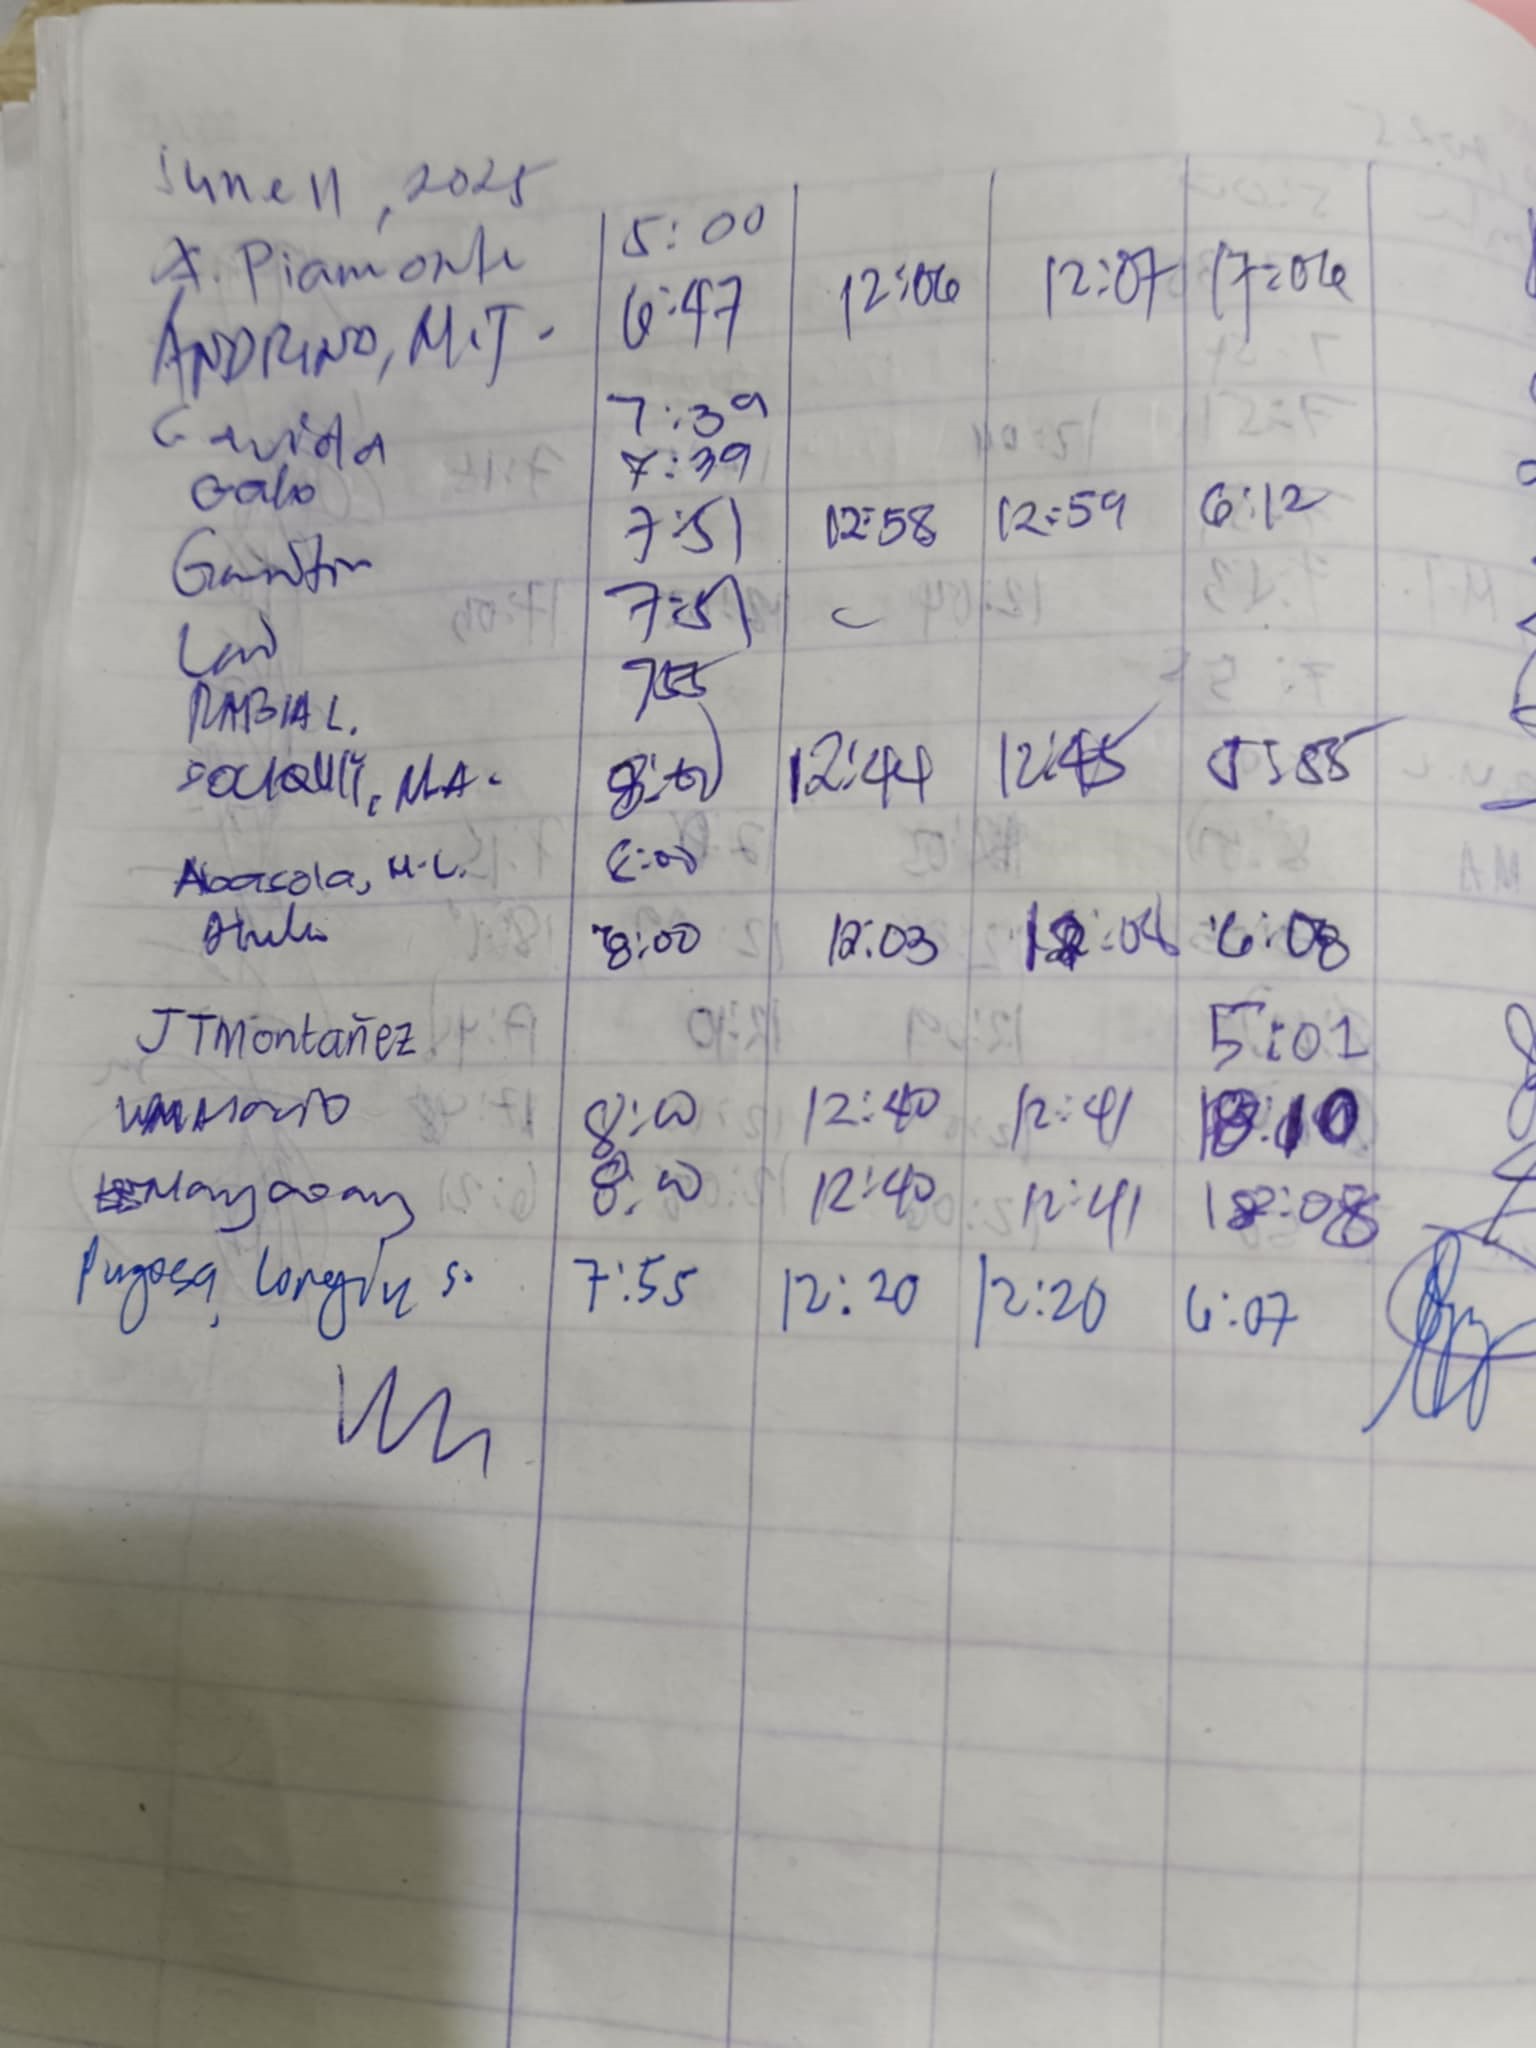 June 11, 2025
A. Piamonte 5:00
ANDRINO, M.J. 6:47 12:06 12:07 17:06
7:39
Galo 7:39
7:51 12:58 12:59 6:12
7:51
RABIA L. 755
M.A. 8:00 12:44 12:45 5:55
Abasola, M.L. 8:00
8:00 12:03 6:08
JTMontañez 5:01
8:00 12:40 12:41 18:10
8:00 12:40 12:41 18:08
Pugosa, Longin S. 7:55 12:20 12:20 6:07